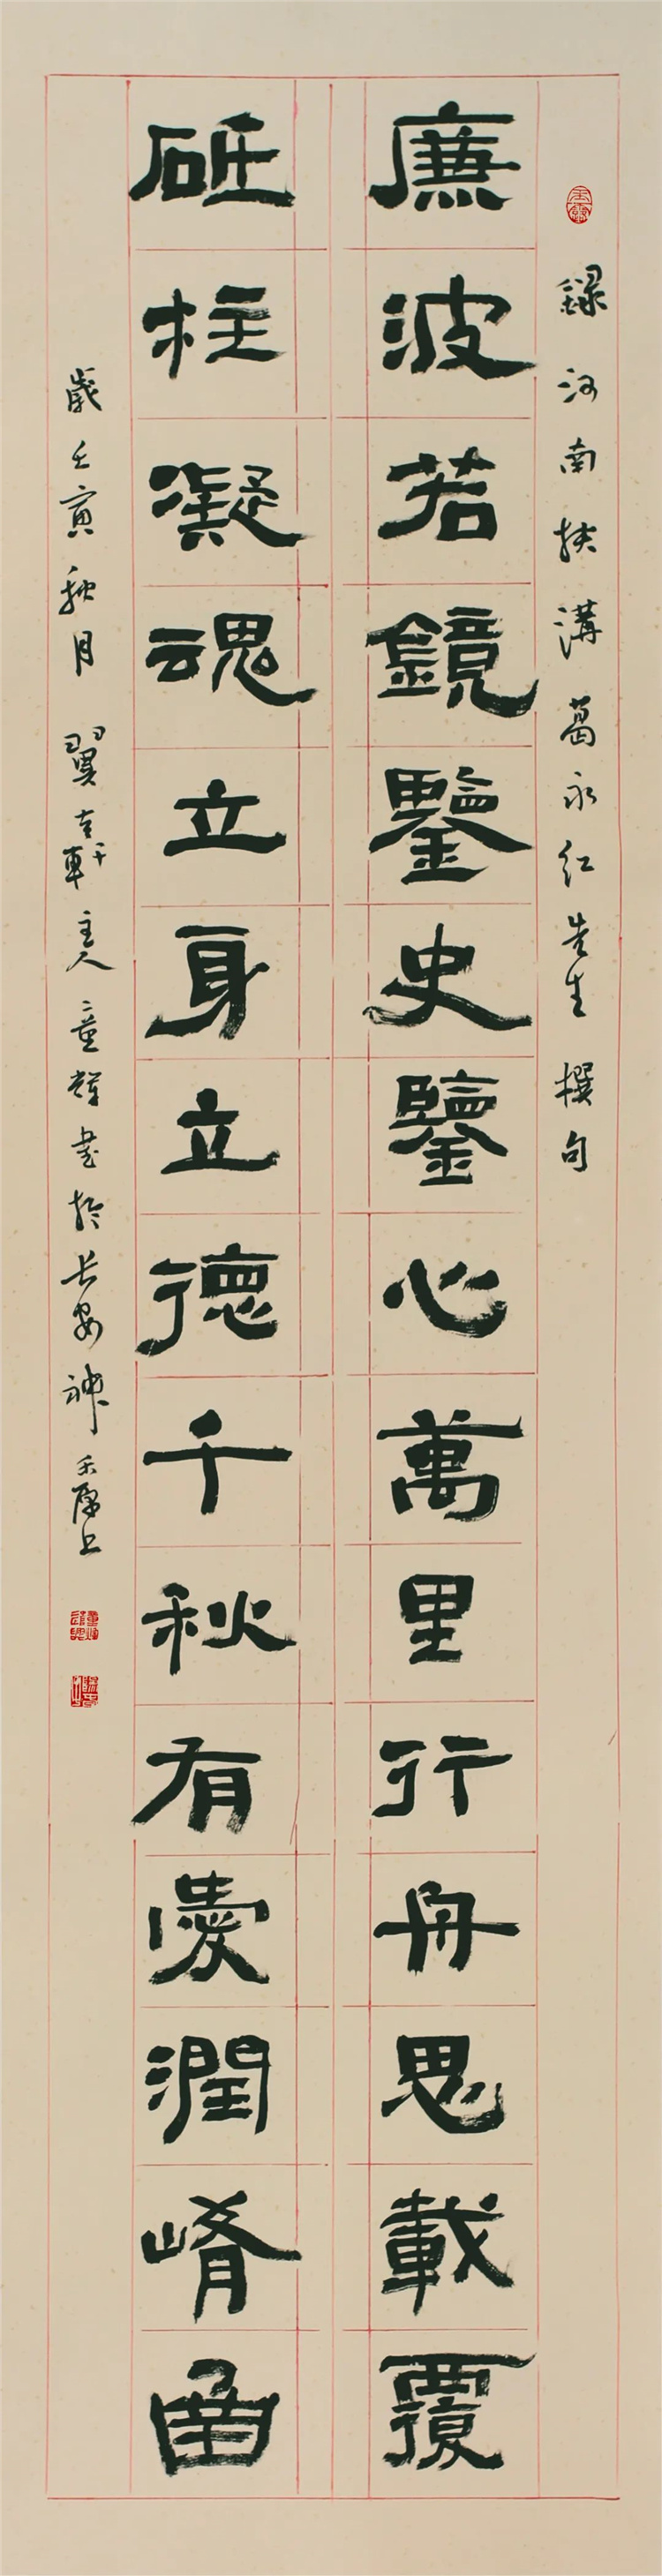 録河南扶溝葛永红先生撰句
廉波若鏡鑒史鑒心萬里行舟思載覆
砥柱凝魂立身立德千秋有愛潤崤函
歲壬寅秋月翼青軒主人童輝书於长安神禾原上